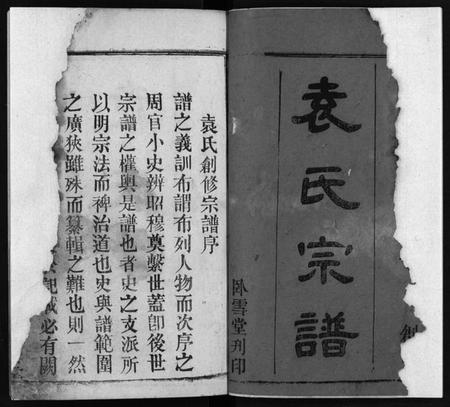 創
袁氏宗譜
卧雪堂刋印
袁氏創修宗譜序
譜之義訓布謂布列人物而次序之
周官小史辨昭穆奠繫世蓋卽後世
宗譜之權輿是譜也者史之支派所
以明宗法而裨治道也史與譜範圍
之廣狹雖殊而纂輯之難也則一然
記載必有闕